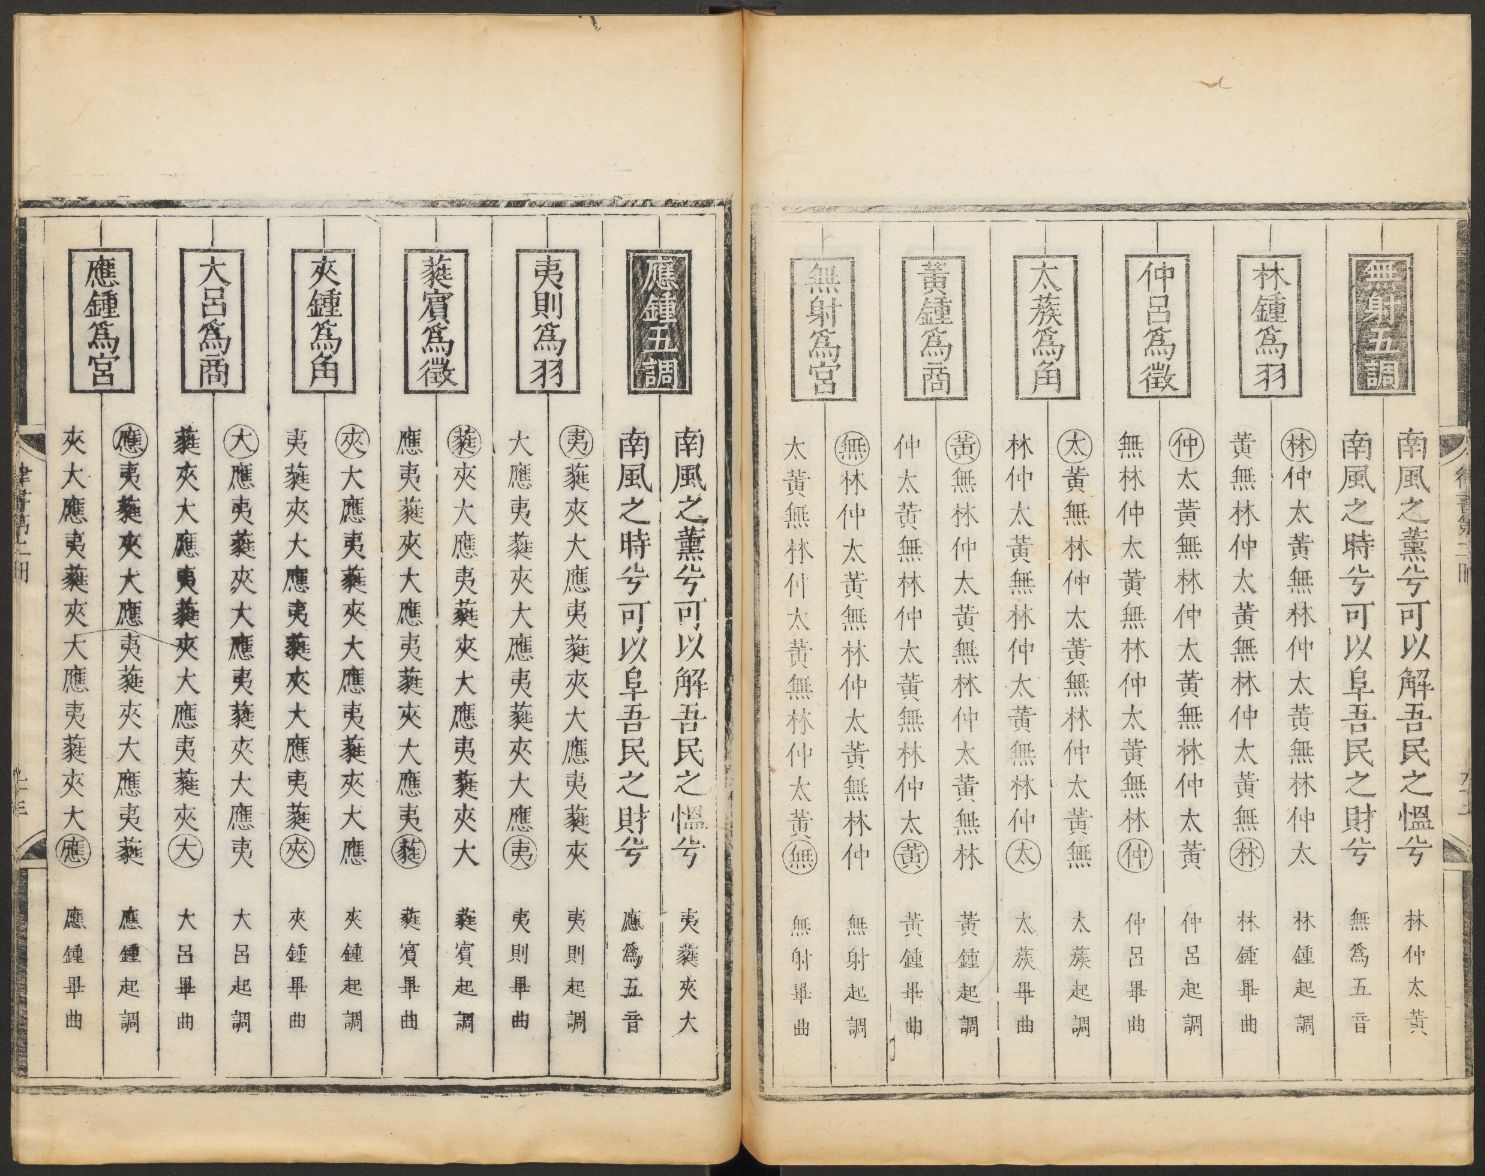 無射五調
南風之薰兮可以解吾民之慍兮 林仲太黃
南風之時兮可以阜吾民之財兮 無爲五音
林鍾爲羽
林仲太黃無林仲太黃無林仲太 林鍾起調
黃無林仲太黃無林仲太黃無林 林鍾畢曲
仲呂爲徵
仲太黃無林仲太黃無林仲太黃 仲呂起調
無林仲太黃無林仲太黃無林仲 仲呂畢曲
太蔟爲角
太黃無林仲太黃無林仲太黃無 太蔟起調
林仲太黃無林仲太黃無林仲太 太蔟畢曲
黃鍾爲商
黃無林仲太黃無林仲太黃無林 黃鍾起調
仲太黃無林仲太黃無林仲太黃 黃鍾畢曲
無射爲宮
無林仲太黃無林仲太黃無林仲 無射起調
太黃無林仲太黃無林仲太黃無 無射畢曲
應鍾五調
南風之薰兮可以解吾民之慍兮 夷蕤夾大
南風之時兮可以阜吾民之財兮 應爲五音
夷則爲羽
夷蕤夾大應夷蕤夾大應夷蕤夾 夷則起調
大應夷蕤夾大應夷蕤夾大應夷 夷則畢曲
蕤賓爲徵
蕤夾大應夷蕤夾大應夷蕤夾大 蕤賓起調
應夷蕤夾大應夷蕤夾大應夷蕤 蕤賓畢曲
夾鍾爲角
夾大應夷蕤夾大應夷蕤夾大應 夾鍾起調
夷蕤夾大應夷蕤夾大應夷蕤夾 夾鍾畢曲
大呂爲商
大應夷蕤夾大應夷蕤夾大應夷 大呂起調
蕤夾大應夷蕤夾大應夷蕤夾大 大呂畢曲
應鍾爲宮
應夷蕤夾大應夷蕤夾大應夷蕤 應鍾起調
夾大應夷蕤夾大應夷蕤夾大應 應鍾畢曲